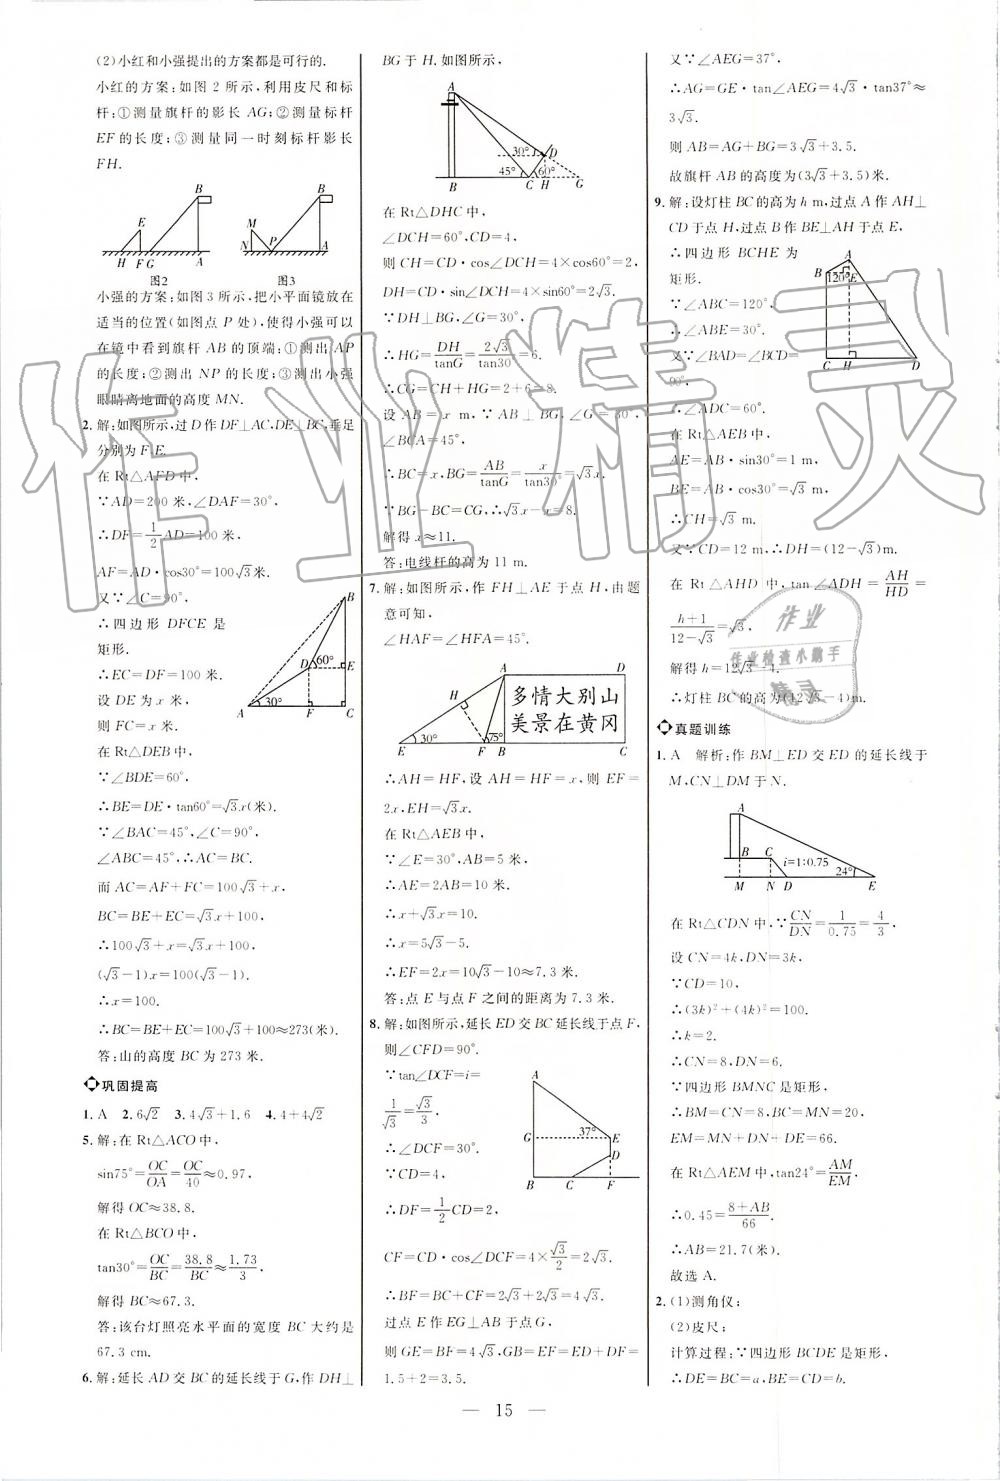 (2)小红和小强提出的方案都是可行的.
小红的方案:如图2所示,利用皮尺和标
杆:①测量旗杆的影长AG;②测量标杆
EF的长度;③测量同一时刻标杆影长
FH.
B
E
H F G A
图2
B
M
N P A
图3
小强的方案:如图3所示,把小平面镜放在
适当的位置(如图点P处),使得小强可以
在镜中看到旗杆AB的顶端:①测出AP
的长度;②测出NP的长度;③测出小强
眼睛离地面的高度MN.
2.解:如图所示,过D作DF⊥AC,DE⊥BC,垂足
分别为F,E.
在Rt△AFD中,
∵AD=200米,∠DAF=30°,
∴DF=1/2AD=100米,
AF=AD·cos30°=100√3米.
又∵∠C=90°,
∴四边形DFCE是
矩形.
∴EC=DF=100米.
设DE为x米,
则FC=x米.
在Rt△DEB中,
∵∠BDE=60°,
∴BE=DE·tan60°=√3x(米).
∵∠BAC=45°,∠C=90°,
∠ABC=45°,∴AC=BC.
而AC=AF+FC=100√3+x,
BC=BE+EC=√3x+100,
∴100√3+x=√3x+100,
(√3-1)x=100(√3-1).
∴x=100.
∴BC=BE+EC=100√3+100≈273(米).
答:山的高度BC为273米.
B
D 60° E
A 30° F C
巩固提高
1.A 2.6√2 3.4√3+1.6 4.4+4√2
5.解:在Rt△ACO中,
sin75°=OC/OA=OC/40≈0.97,
解得OC≈38.8.
在Rt△BCO中,
tan30°=OC/BC=38.8/BC≈1.73/3.
解得BC≈67.3.
答:该台灯照亮水平面的宽度BC大约是
67.3 cm.
6.解:延长AD交BC的延长线于G,作DH⊥
BG于H.如图所示,
A
30° D
45° 60°
B C H G
在Rt△DHC中,
∠DCH=60°,CD=4,
则CH=CD·cos∠DCH=4×cos60°=2,
DH=CD·sin∠DCH=4×sin60°=2√3.
∵DH⊥BG,∠G=30°,
∴HG=DH/tanG=2√3/tan30°=6.
∴CG=CH+HG=2+6=8.
设AB=x m,∵AB⊥BG,∠G=30°,
∠BCA=45°,
∴BC=x,BG=AB/tanG=x/tan30°=√3x.
∵BG-BC=CG,∴√3x-x=8.
解得x≈11.
答:电线杆的高为11 m.
7.解:如图所示,作FH⊥AE于点H,由题
意可知,
∠HAF=∠HFA=45°.
A D
H
多情大别山
美景在黄冈
30° 75°
E F B C
∴AH=HF,设AH=HF=x,则EF=
2x,EH=√3x.
在Rt△AEB中,
∵∠E=30°,AB=5米,
∴AE=2AB=10米.
∴x+√3x=10.
∴x=5√3-5.
∴EF=2x=10√3-10≈7.3米.
答:点E与点F之间的距离为7.3米.
8.解:如图所示,延长ED交BC延长线于点F,
则∠CFD=90°.
∵tan∠DCF=i=
1/√3=√3/3,
∴∠DCF=30°.
∵CD=4,
∴DF=1/2CD=2,
A
G 37° E
D
B C F
CF=CD·cos∠DCF=4×√3/2=2√3.
∴BF=BC+CF=2√3+2√3=4√3.
过点E作EG⊥AB于点G,
则GE=BF=4√3,GB=EF=ED+DF=
1.5+2=3.5.
又∵∠AEG=37°,
∴AG=GE·tan∠AEG=4√3·tan37°≈
3√3.
则AB=AG+BG=3√3+3.5.
故旗杆AB的高度为(3√3+3.5)米.
9.解:设灯柱BC的高为h m,过点A作AH⊥
CD于点H,过点B作BE⊥AH于点E,
∴四边形BCHE为
矩形.
∵∠ABC=120°,
∴∠ABE=30°.
又∵∠BAD=∠BCD=
90°,
∴∠ADC=60°.
在Rt△AEB中,
AE=AB·sin30°=1 m,
BE=AB·cos30°=√3 m.
∴CH=√3 m.
又∵CD=12 m,∴DH=(12-√3)m.
A
B 120° E
C H D
在Rt△AHD中,tan∠ADH=AH/HD=
h+1/12-√3=√3,
解得h=12√3-4.
∴灯柱BC的高为(12√3-4)m.
真题训练
1.A 解析:作BM⊥ED交ED的延长线于
M,CN⊥DM于N.
A
B C i=1:0.75
24°
M N D E
在Rt△CDN中,∵CN/DN=1/0.75=4/3,
设CN=4k,DN=3k,
∵CD=10,
∴(3k)²+(4k)²=100.
∴k=2.
∴CN=8,DN=6.
∵四边形BMNC是矩形,
∴BM=CN=8,BC=MN=20,
EM=MN+DN+DE=66.
在Rt△AEM中,tan24°=AM/EM,
∴0.45=8+AB/66.
∴AB=21.7(米).
故选A.
2.(1)测角仪;
(2)皮尺;
计算过程:∵四边形BCDE是矩形,
∴DE=BC=a,BE=CD=b.
— 15 —
作业精灵
作业
作业检查小帮手
精灵